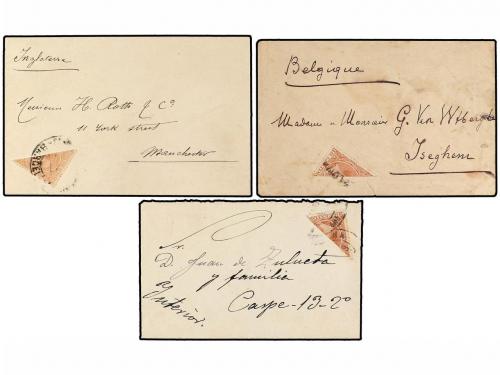 Inglaterra
Monsieur H. Rotto & Cº
11 York street
Manchester
Belgique
Madame & Monsieur G. Van
Iseghem
Sr.
D. Juan de Zulueta
y familia
Interior.
Caspe-13-2º